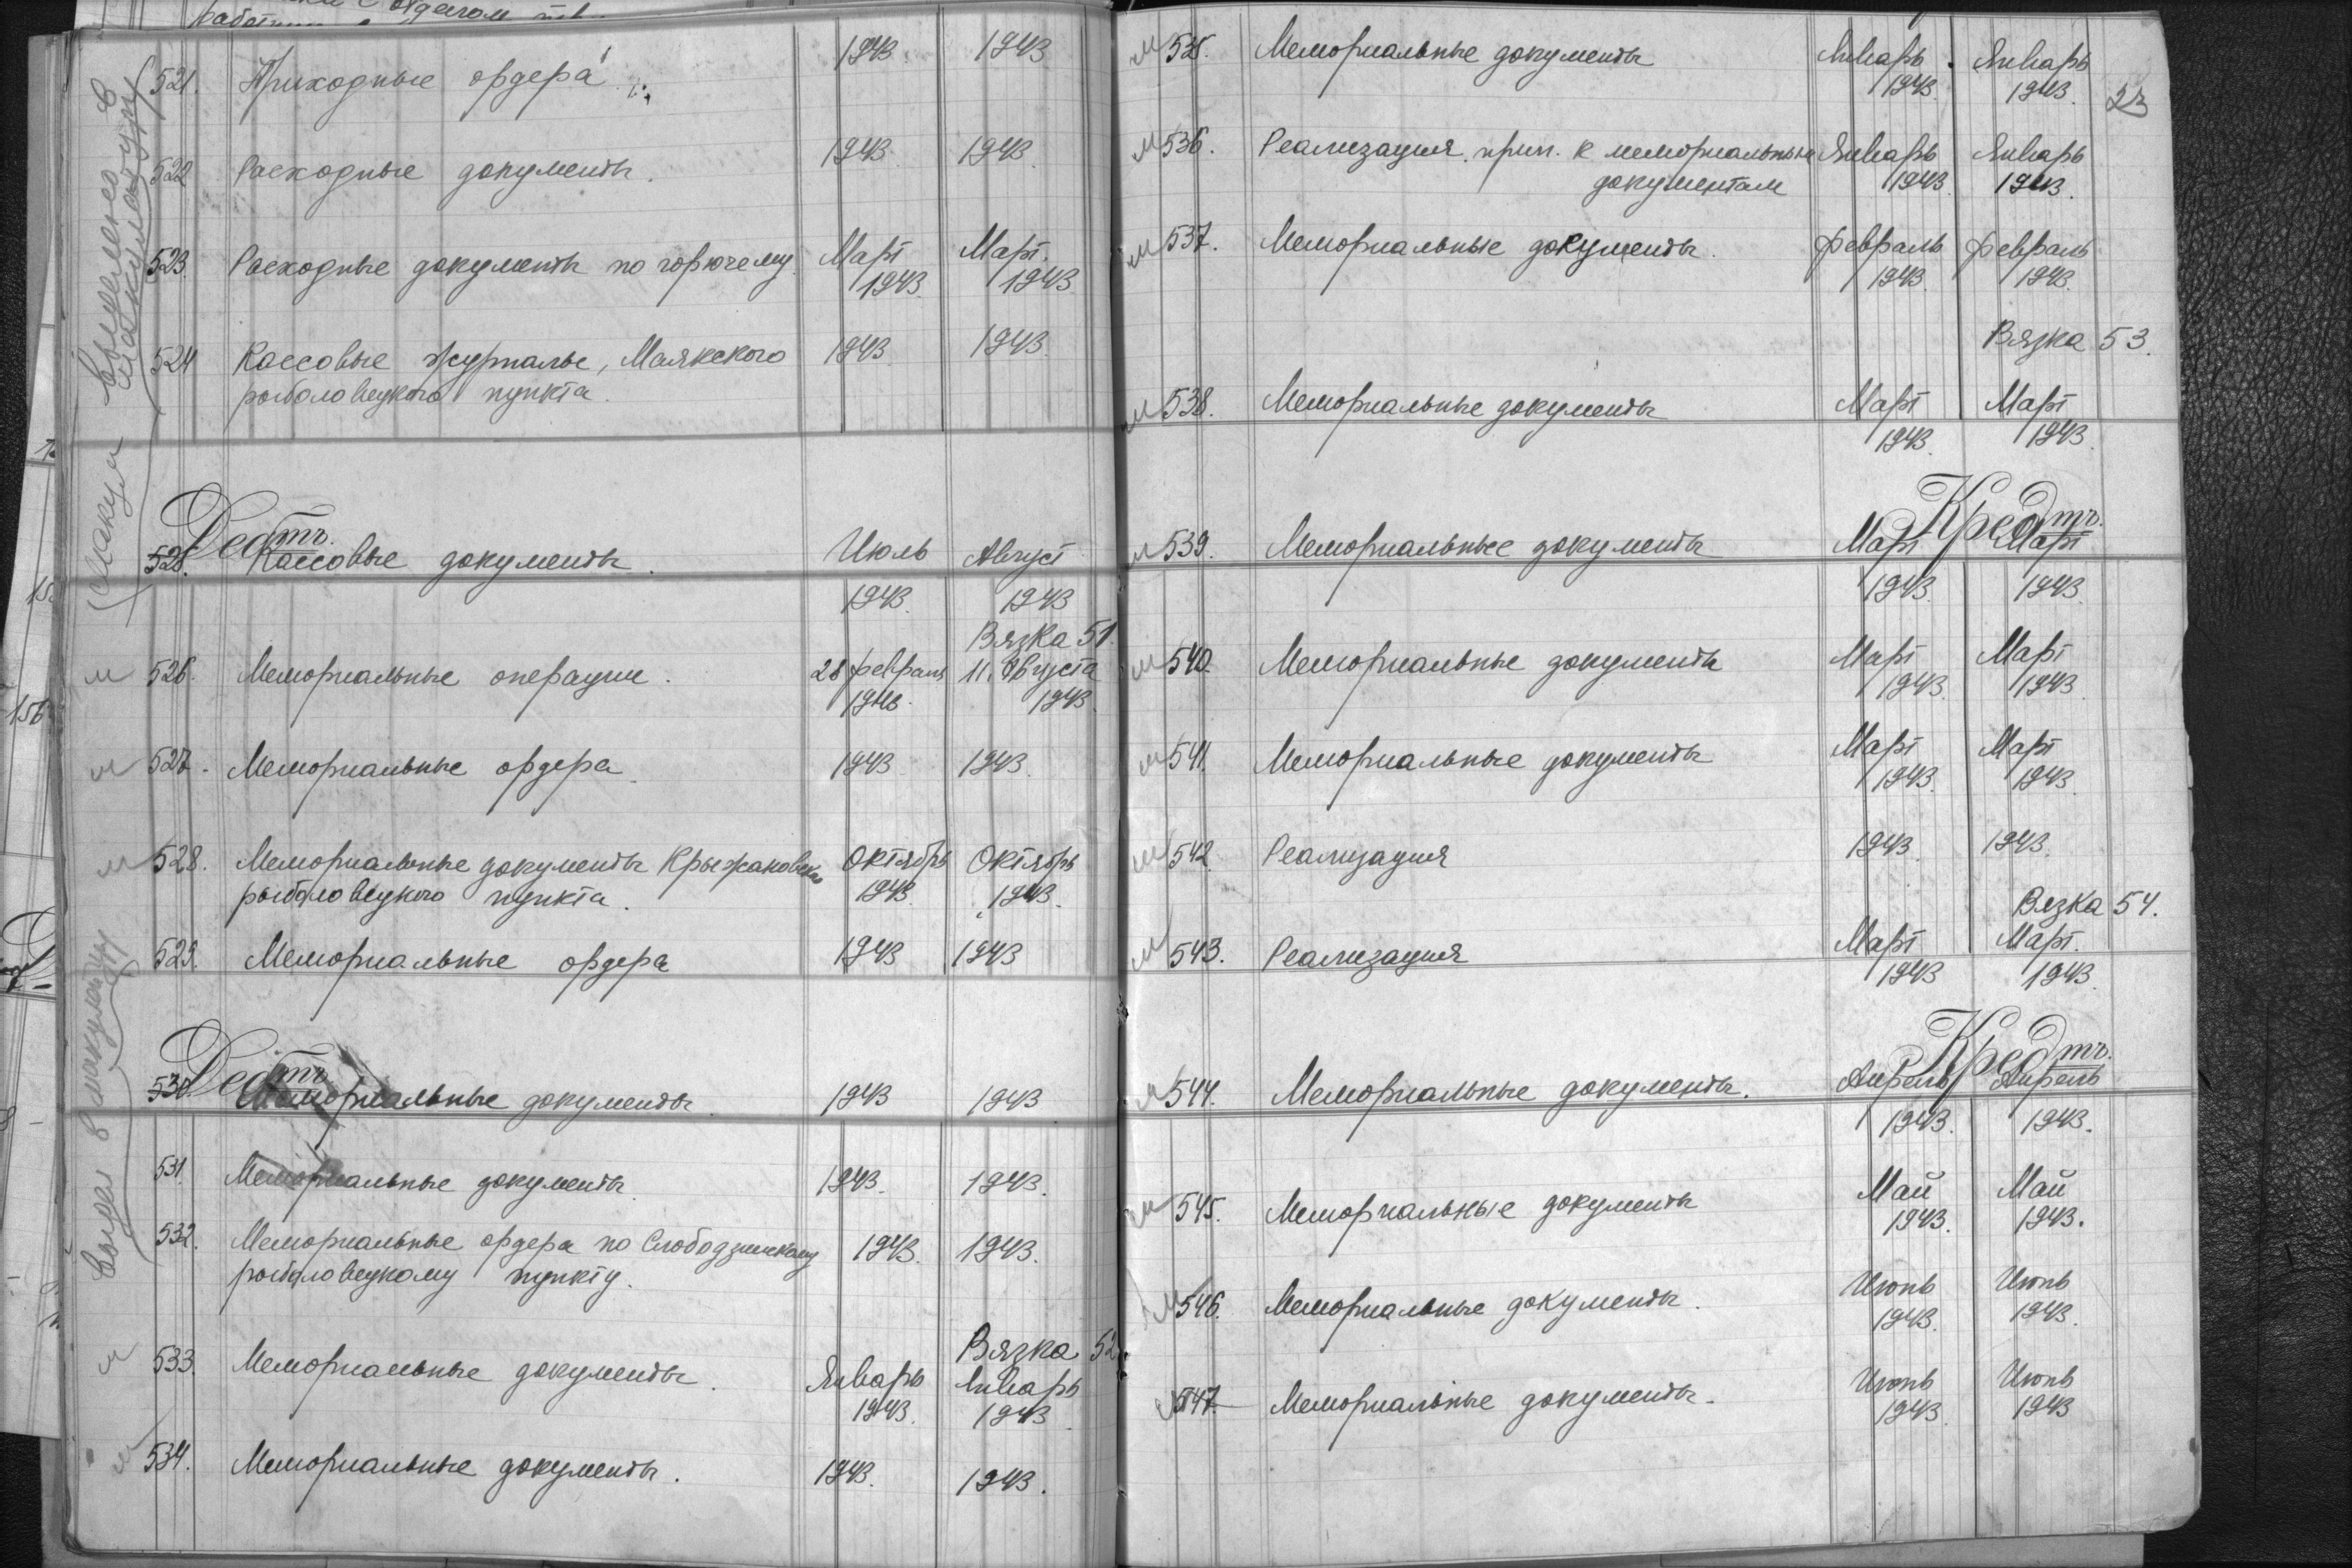 521. Приходные ордера 1943. 1943
522 Расходные документы. 1943 1943
523. Расходные документы по горючему. Март Март.
1943. 1943
524 Кассовые журналы, Маякского 1943 1943.
рыболовецкого пункта.
Дебтъ.
525. Кассовые документы. Июль Август
1943. 1943
Вязка 51.
526. Мемориальные операции. 28 февраля 11. августа
1943. 1943.
527. Мемориальные ордера. 1943 1943.
528. Мемориальные документы Крыжановского Октябрь Октябрь
рыболовецкого пункта. 1943. 1943.
529. Мемориальные ордера 1943 1943
Дебтъ
530. Мемориальные документы. 1943 1943
531. Мемориальные документы. 1943. 1943.
532. Мемориальные ордера по Слободзинскому 1943. 1943.
рыболовецкому пункту.
Вязка 52
533. Мемориальные документы. Январь Январь
1943. 1943
534. Мемориальные документы. 1943. 1943.
м 535. Мемориальные документы Январь. Январь
1943. 1943. 23
м 536. Реализация прил. к мемориальным Январь Январь
документам 1943. 1943.
м 537. Мемориальные документы. февраль февраль
1943. 1943.
Вязка 53.
м 538. Мемориальные документы Март Март
1943. 1943.
Кредтъ.
м 539. Мемориальные документы Март Март
1943. 1943.
м 540. Мемориальные документы Март Март
1943. 1943
м 541. Мемориальные документы Март Март
1943. 1943.
м 542. Реализация 1943. 1943.
Вязка 54.
м 543. Реализация Март Март.
1943 1943.
Кредтъ.
м 544. Мемориальные документы. Апрель Апрель
1943. 1943.
м 545. Мемориальные документы Май Май
1943. 1943.
м 546. Мемориальные документы. Июнь Июнь
1943. 1943.
547. Мемориальные документы. Июнь Июнь
1943. 1943